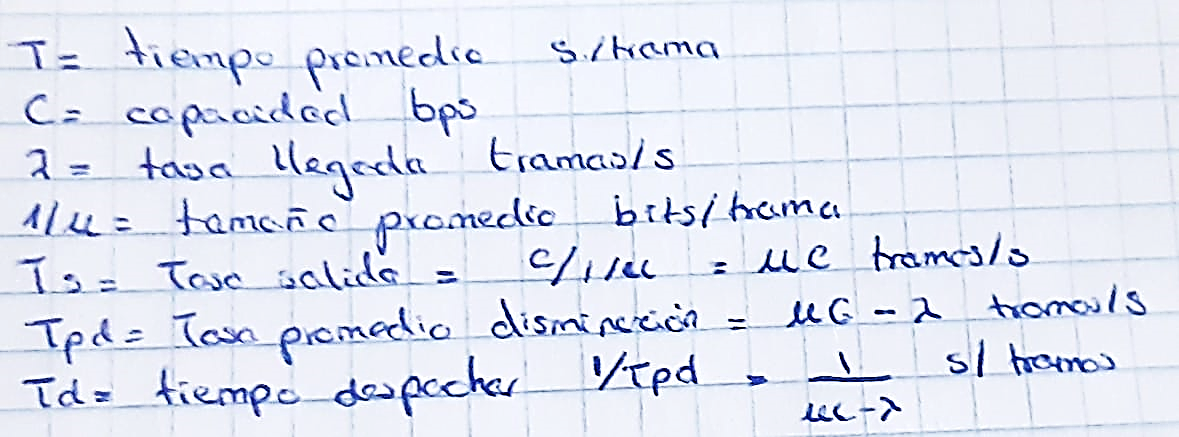 T = tiempo promedio s/trama
C = capacidad bps
λ = tasa llegada tramas/s
1/μ = tamaño promedio bits/trama
Ts = Tasa salida = C/1/μ = μC tramas/s
Tpd = Tasa promedio disminución = μC - λ tramas/s
Td = tiempo despachar 1/Tpd = 1/(μC-λ) s/tramas